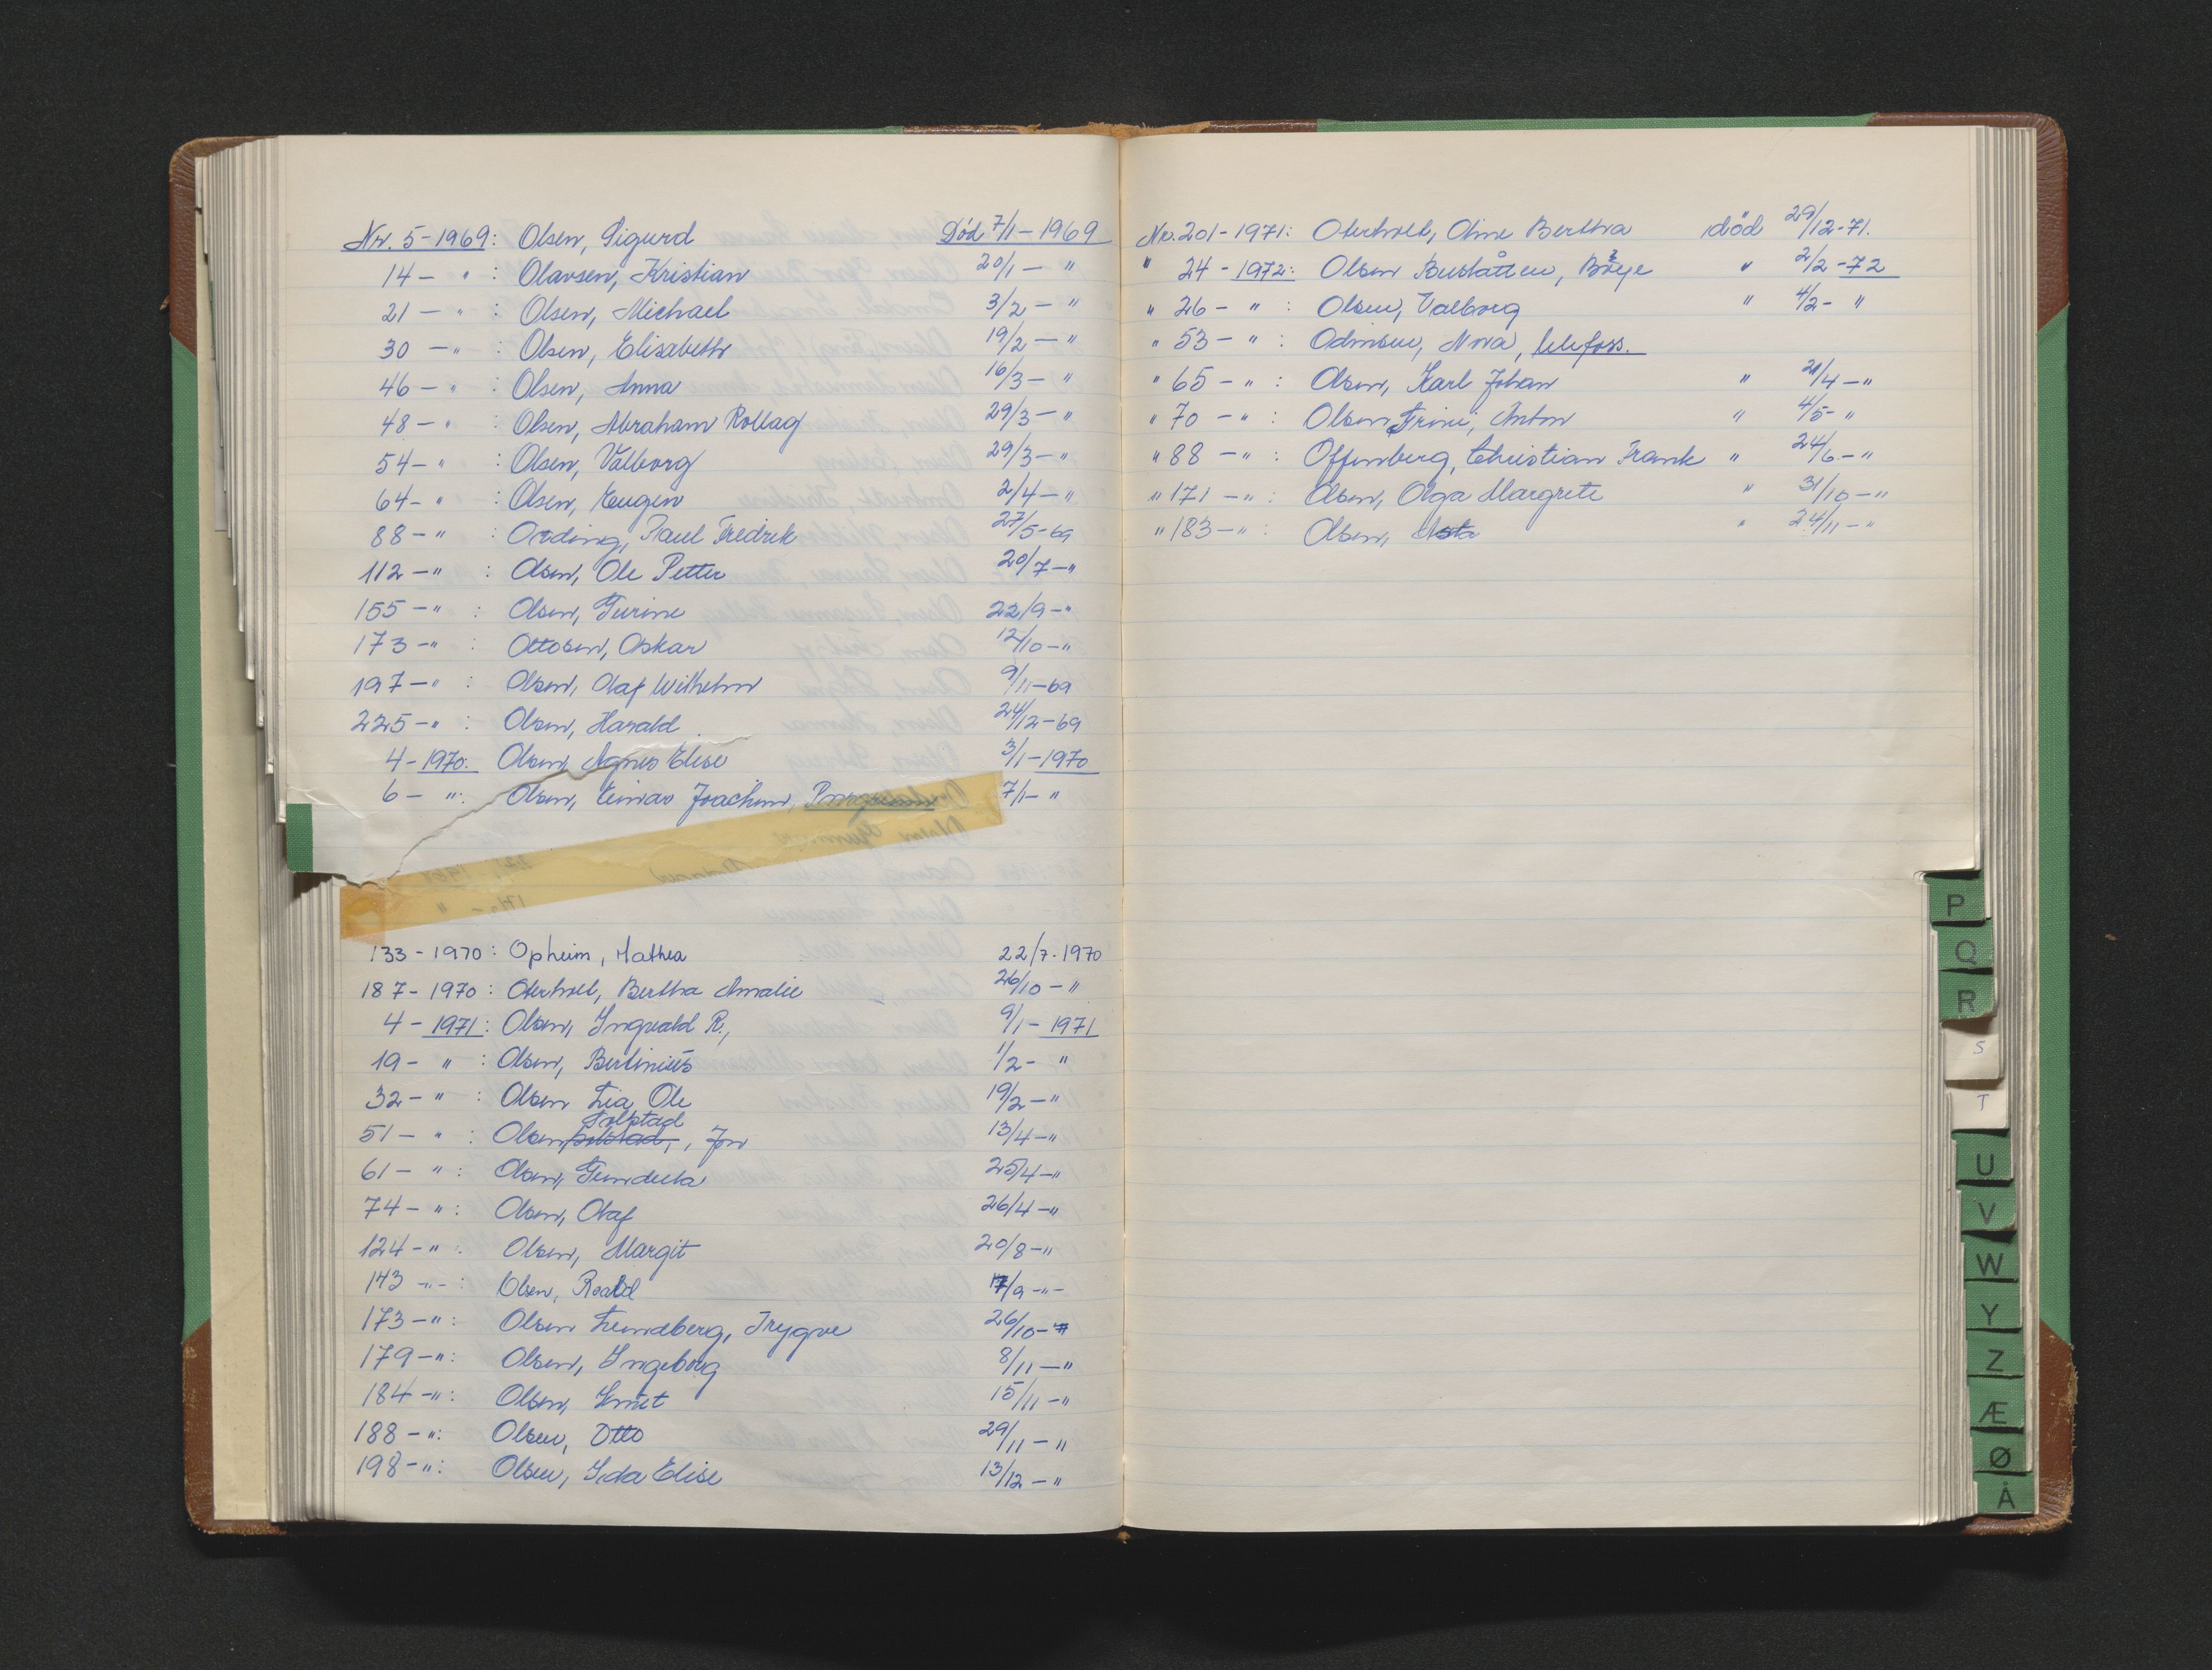 Nr. 5-1969: Olsen, Sigurd Død 7/1-1969
14 - " : Olavsen, Kristian 20/1 - "
21 - " : Olsen, Michael 3/2 - "
30 - " : Olsen, Elisabeth 19/2 - "
46 - " : Olsen, Anna 16/3 - "
48 - " : Olsen, Abraham Rollag 29/3 - "
54 - " : Olsen, Valborg 29/3 - "
64 - " : Olsen, Eugen 2/4 - "
88 - " : Ording, Paul Fredrik 27/5-69
112 - " : Olsen, Ole Petter 20/7 - "
155 - " : Olsen, Gurine 22/9 - "
173 - " : Ottosen, Oskar 12/10 - "
197 - " : Olsen, Olaf Wilhelm 9/11-69
225 - " : Olsen, Harald 24/12-69
4-1970: Olsen, Agnes Elise 3/1-1970
6 - " : Olsen, Einar Joachim, 7/1- "
133-1970: Opheim, Mathea 22/7-1970
187-1970: Oterholt, Bertha Amalie 26/10 - "
4-1971: Olsen, Ingvald R., 9/1-1971
19 - " : Olsen, Bertinius 1/2 - "
32 - " : Olsen Lia, Ole 19/2 - "
Solstad
51 - " : Olsen , Jon 13/4 - "
61 - " : Olsen, 25/4 - "
74 - " : Olsen, Olaf 26/4 - "
124 - " : Olsen, Margit 20/8 - "
143 - " - : Olsen, Roald 17/9 - " -
173 - " : Olsen Lundberg, Trygve 26/10 - "
179 - " : Olsen, Ingeborg 8/11 - "
184 - " : Olsen, Knut 15/11 - "
188 - " : Olsen, Otto 29/11 - "
198 - " : Olsen, Ida Elise 13/12 - "
Nr. 201-1971: Oterholt, Oline Bertha død 29/12-71.
" 24-1972: Olsen Buslåtten, Børge " 2/2-72
" 26 - " : Olsen, Valborg " 4/2 - "
" 53 - " : Odinsen, Nora, Ulefoss.
" 65 - " : Olsen, Karl Johan " 21/4 - "
" 70 - " : Olsen Grini, Anton " 4/5 - "
" 88 - " : Offenberg, Christian Frank " 24/6 - "
" 171 - " : Olsen, Olga Margrete " 31/10 - "
" 183 - " : Olsen, Asta " 24/11 - "
P
Q
R
S
T
U
V
W
Y
Z
Æ
Ø
Å